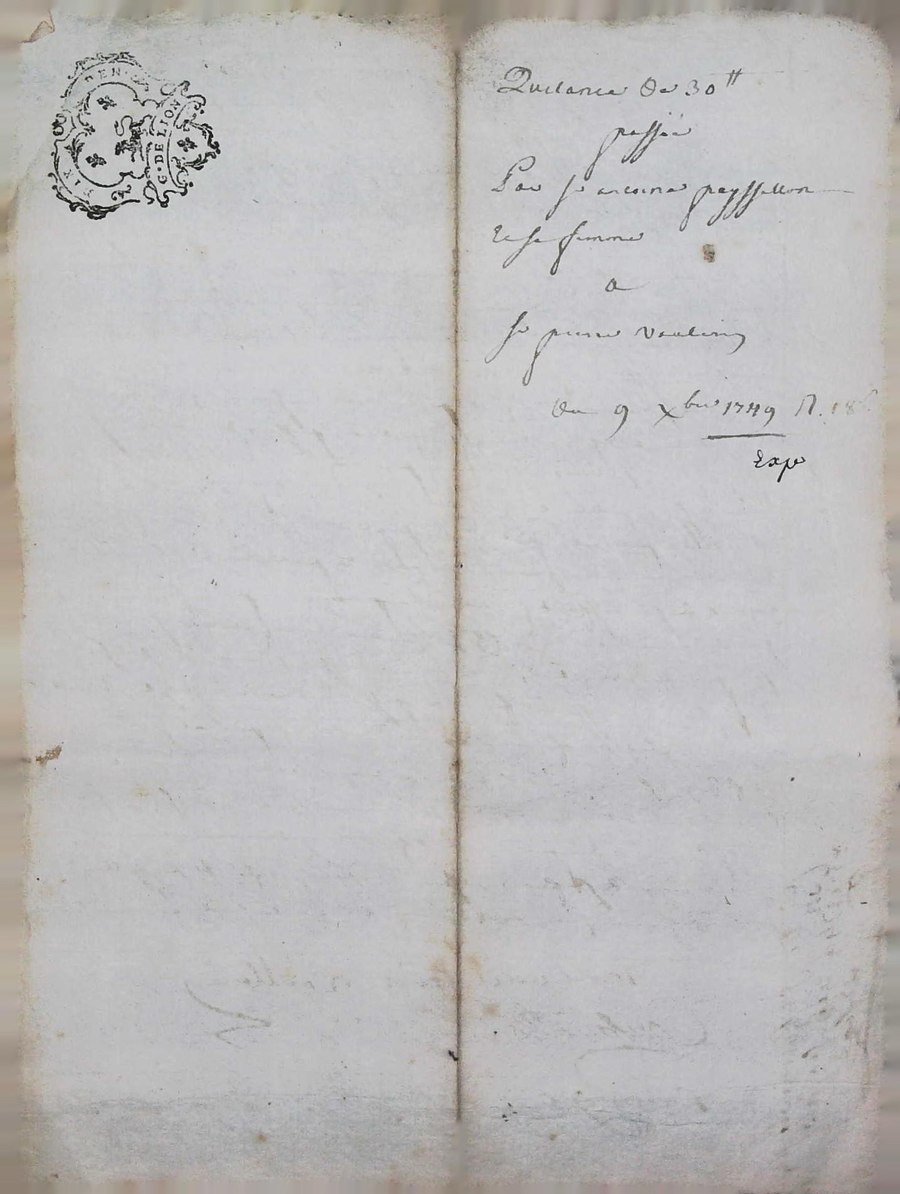 SIX DEN.
G. DE LION
Quitance de 30 ₶
passée
Par sr antoine peyssellon
et sa femme
a
sr pierre
du 9 Xbre 1749
Exp